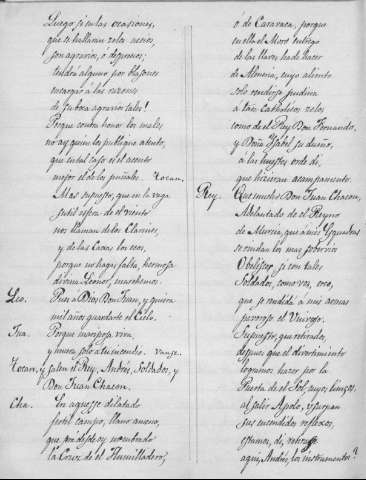 Luego, si en las ocasiones,
que se hallarin zelos necios,
son agravios, ó desprecios;
tendrá alguno por blasones
á las razones
de su boca agraviostales!
Porque contra honor los males
no ay quien los publique atento,
que en tal caso es el acento
mejor el de los puñales. Tocan.
Mas supuesto, que en la vaga
sutil esfera de el viento
nos llaman de los Clarines,
y de las Caxas los ecos,
porque no hagas falta, hermosa
divina Leonor, marchemos.
Leo. Pues á Dios, Don Juan, y quiera
mil años guardarte el Cielo.
Jua. Porque mariposa viva,
y muera solo a tu incendio. vanse.
Tocan, y salen el Rey, Andrés, Soldados, y
Don Juan Chacon.
Cha. En aquesse dilatado
fertil campo, llano ameno,
que por desde oy nombrado
la Cruz de el Humilladero,
ó de Caravaca, porque
en ella el Moro entrego
de las llaves ha de hacer
de Almeria, cuyo aliento
solo rendirse pudiera
a tan Catholicos zelos
como de el Rey Don Fernando,
y Doña Ysabel, su dueño,
a las huestes orden di,
que hicieran acampamento.
Rey. Que mucho Don Juan Chacon,
Adelantado de el Reyno
de Murcia, que a mis Esquadras
se rindan los mas sobervios
Obeliscos, si con tales
Soldados, como vos, creo,
que se rendirá á mis armas
pavoroso el Universo.
Supuesto, que retirados,
despues que el divertimiento
logramos hacer por la
Puerta de el Sol, cuyos lienzos,
al salir Apolo, usurpan
sus encendidos reflexos,
estamos, di, retirase
aqui, Andrés, los instrumentos?